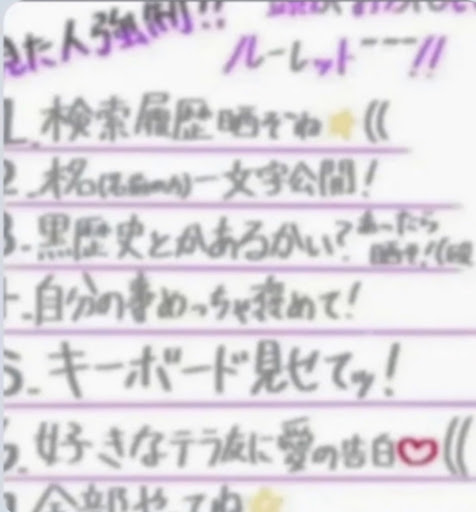 見た人強制!!
ルーレットーーー!!
1.検索履歴晒そうね((
2.本名(名前のみ)一文字公開!
3.黒歴史とかあるかい?あったら
晒せ!(
4.自分の事めっちゃ褒めて!
5.キーボード見せてッ!
6.好きなテラ友に愛の告白♡((
全部やってね